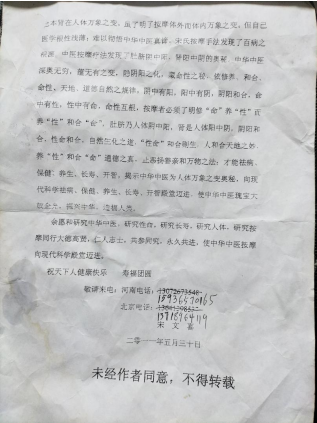 之本旨在人体万象之变，虽了明了按摩体外而体内万象之变，但自己
医学相性残薄，难以彻悟中华中医真谛。宋氏按摩手法发现了百病之
根源，中医按摩疗法发现了肚脐阴中面，肾阴中阴的奥秘，中华中医
深奥无穷，蕴无有之变，随阴阳之化，凝命性之秘，依修养、和合、
命性，天地、道意自然之规律，阴中有阳，阳中有阴，阴阳和合，命
中有性，性中有命，命性互根，按摩者必须了明做“命”养“性”而
养“性”和合“命”，肚脐乃人体阴中阳，皆是人体阳中阴，阴阳和
合，性命和合，自然生化之道，“性命”和合衡生，人和合天地之妙，
养“性”和合“命”通德之真，正添扬善亲和万物之法；才能祛病、
保健、养生、长寿、开智；揭示中华中医为人体万象之变奥秘，向现
代科学祛病、保健、养生、长寿、开智殿堂迈进，使中华中医瑰宝大
放金光，振兴中华，造福人类。
余愿和研究中华中医、研究性命、研究长寿、研究人体、研究按
摩同行大德高贤，仁人志士，共参同究，永久共进，使中华中医按摩
向现代科学殿堂迈进。
祝天下人健康快乐 寿福团圆
敬请来电：河南电话：
15936570165
北京电话：
13718964119
宋文喜
二〇一一年五月三十日
未经作者同意，不得转载